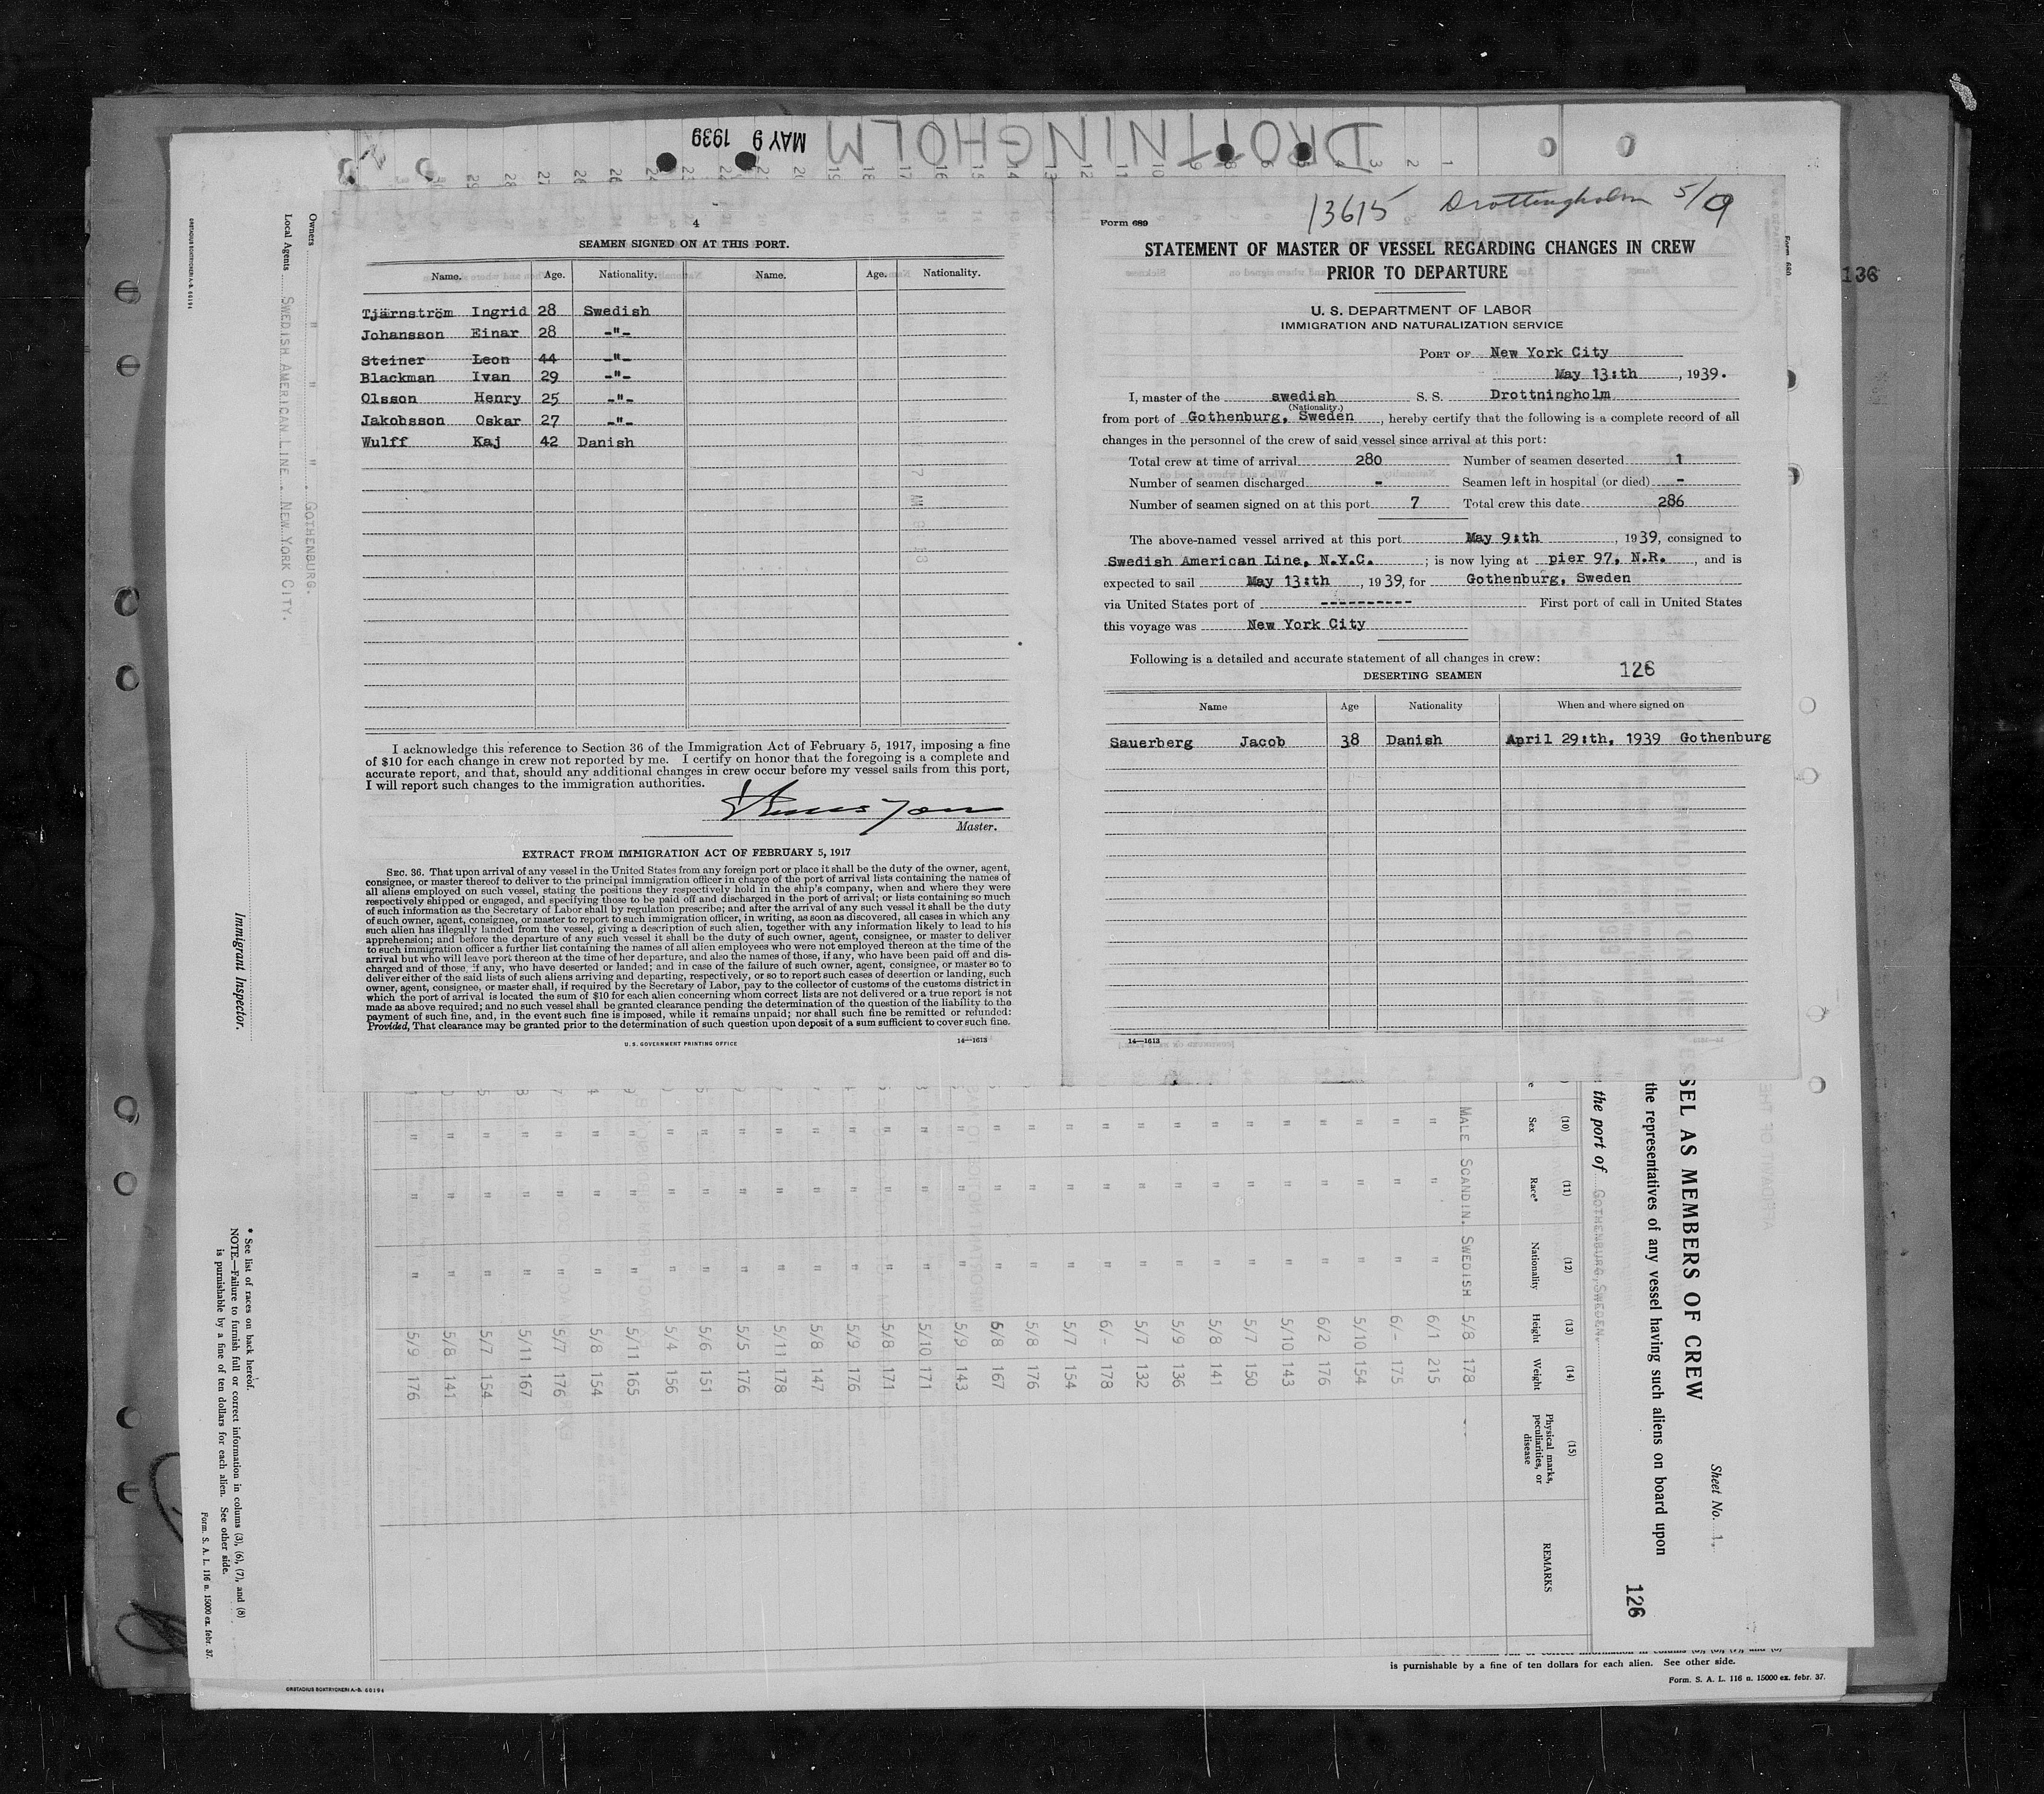 DROTTNINGHOLM
MAY 9 1939
4
SEAMEN SIGNED ON AT THIS PORT.
Name. Age. Nationality. Name. Age. Nationality.
Tjärnström Ingrid 28 Swedish
Johansson Einar 28 -"-
Steiner Leon 44 -"-
Blackman Ivan 29 -"-
Olsson Henry 25 -"-
Jakobsson Oskar 27 -"-
Wulff Kaj 42 Danish
I acknowledge this reference to Section 36 of the Immigration Act of February 5, 1917, imposing a fine
of $10 for each change in crew not reported by me. I certify on honor that the foregoing is a complete and
accurate report, and that, should any additional changes in crew occur before my vessel sails from this port,
I will report such changes to the immigration authorities.
Master.
EXTRACT FROM IMMIGRATION ACT OF FEBRUARY 5, 1917
SEC. 36. That upon arrival of any vessel in the United States from any foreign port or place it shall be the duty of the owner, agent,
consignee, or master thereof to deliver to the principal immigration officer in charge of the port of arrival lists containing the names of
all aliens employed on such vessel, stating the positions they respectively hold in the ship's company, when and where they were
respectively shipped or engaged, and specifying those to be paid off and discharged in the port of arrival; or lists containing so much
of such information as the Secretary of Labor shall by regulation prescribe; and after the arrival of any such vessel it shall be the duty
of such owner, agent, consignee, or master to report to such immigration officer, in writing, as soon as discovered, all cases in which any
such alien has illegally landed from the vessel, giving a description of such alien, together with any information likely to lead to his
apprehension; and before the departure of any such vessel it shall be the duty of such owner, agent, consignee, or master to deliver
to such immigration officer a further list containing the names of all alien employees who were not employed thereon at the time of the
arrival but who will leave port thereon at the time of her departure, and also the names of those, if any, who have been paid off and dis-
charged and of those, if any, who have deserted or landed; and in case of the failure of such owner, agent, consignee, or master so to
deliver either of the said lists of such aliens arriving and departing, respectively, or so to report such cases of desertion or landing, such
owner, agent, consignee, or master shall, if required by the Secretary of Labor, pay to the collector of customs of the customs district in
which the port of arrival is located the sum of $10 for each alien concerning whom correct lists are not delivered or a true report is not
made as above required; and no such vessel shall be granted clearance pending the determination of the question of the liability to the
payment of such fine, and, in the event such fine is imposed, while it remains unpaid; nor shall such fine be remitted or refunded:
Provided, That clearance may be granted prior to the determination of such question upon deposit of a sum sufficient to cover such fine.
U. S. GOVERNMENT PRINTING OFFICE 14—1613
13615 Drottningholm 5/9
Form 689
STATEMENT OF MASTER OF VESSEL REGARDING CHANGES IN CREW
PRIOR TO DEPARTURE
U. S. DEPARTMENT OF LABOR
IMMIGRATION AND NATURALIZATION SERVICE
PORT OF New York City
May 13:th, 1939.
I, master of the swedish S. S. Drottningholm
(Nationality.)
from port of Gothenburg, Sweden, hereby certify that the following is a complete record of all
changes in the personnel of the crew of said vessel since arrival at this port:
Total crew at time of arrival 280 Number of seamen deserted 1
Number of seamen discharged - Seamen left in hospital (or died) -
Number of seamen signed on at this port 7 Total crew this date 286
The above-named vessel arrived at this port May 9:th, 1939, consigned to
Swedish American Line, N.Y.C.; is now lying at pier 97, N.R., and is
expected to sail May 13:th, 1939, for Gothenburg, Sweden
via United States port of ---------- First port of call in United States
this voyage was New York City
Following is a detailed and accurate statement of all changes in crew:
126
DESERTING SEAMEN
Name Age Nationality When and where signed on
Sauerberg Jacob 38 Danish April 29:th, 1939 Gothenburg
14—1613
136
Form 689
SEL AS MEMBERS OF CREW
Sheet No. 1.
the representatives of any vessel having such aliens on board upon
the port of GOTHENBURG, SWEDEN.
126
(10) (11) (12) (13) (14) (15)
Sex Race* Nationality Height Weight Physical marks, peculiarities, or disease REMARKS
MALE SCANDIN. SWEDISH 5/8 178
" " " 6/1 215
" " " 6/- 175
" " " 5/10 154
" " " 6/2 176
" " " 5/10 143
" " " 5/7 150
" " " 5/8 141
" " " 5/9 136
" " " 5/7 132
" " " 6/- 178
" " " 5/7 154
" " " 5/8 176
" " " 5/8 167
" " " 5/9 143
" " " 5/10 171
" " " 5/8 171
" " " 5/9 176
" " " 5/8 147
" " " 5/11 178
" " " 5/5 176
" " " 5/6 151
" " " 5/4 156
" " " 5/11 165
" " " 5/8 154
" " " 5/7 176
" " " 5/11 167
" " " 5/7 154
" " " 5/8 141
" " " 5/9 176
Owners " " " " GOTHENBURG.
Local Agents SWEDISH AMERICAN LINE. NEW YORK CITY.
Immigrant Inspector.
* See list of races on back hereof.
NOTE.—Failure to furnish full or correct information in colums (3), (6), (7), and (8)
is punishable by a fine of ten dollars for each alien. See other side.
Form. S. A. L. 116 n. 15000 ex. febr. 37.
ORSTADIUS BOKTRYCKERI A.-B. 60194
is punishable by a fine of ten dollars for each alien. See other side.
Form. S. A. L. 116 n. 15000 ex. febr. 37.
ORSTADIUS BOKTRYCKERI A.-B. 60194